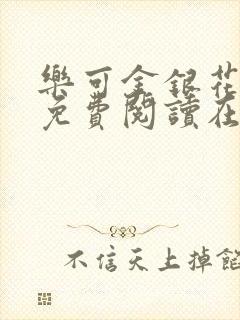 樂可金銀花
免費閱讀在
不信天上掉餡